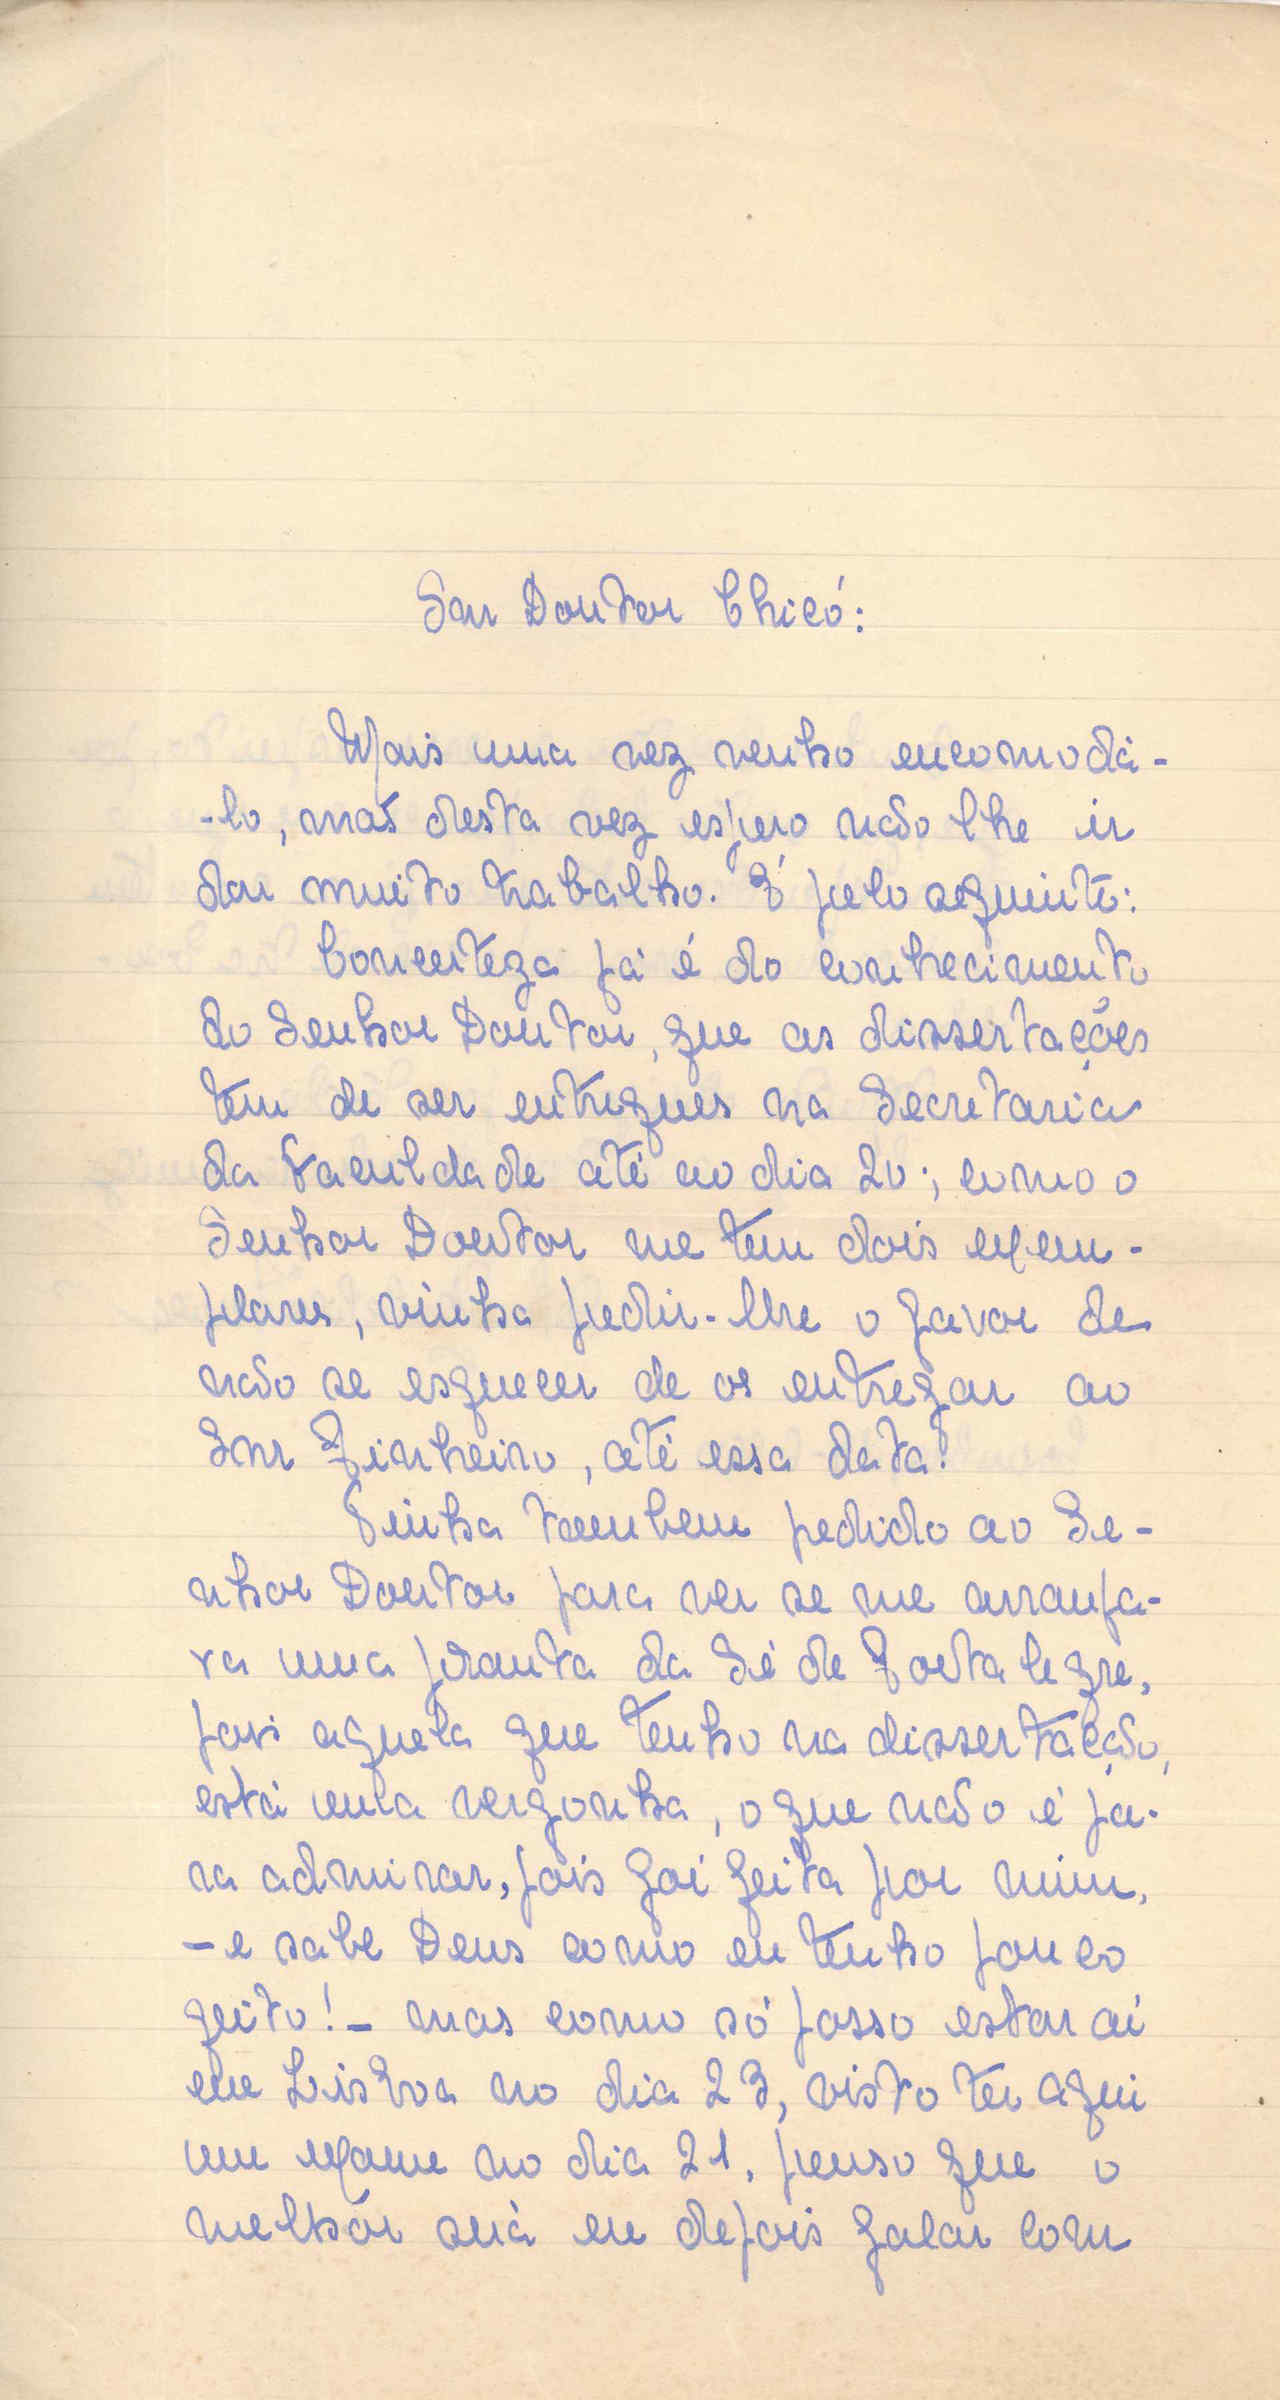 Snr Doutor Chicó:
Mais uma vez venho encomodá-
-lo, mas desta vez espero não lhe ir
dar muito trabalho. É pelo seguinte:
Concerteza já é do conhecimento
do Senhor Doutor, que as dissertações
tem de ser entregues na Secretaria
da Faculdade até ao dia 20; como o
Senhor Doutor me tem dois exem-
plares, vinha pedir-lhe o favor de
não se esquecer de os entregar ao
Snr Pinheiro, até essa data.
Tinha tambem pedido ao Se-
nhor Doutor para ver se me arranja-
va uma planta da Sé de Portalegre,
pois aquela que tenho na dissertação,
está uma vergonha, o que não é pa-
ra admirar, pois foi feita por mim,
- e sabe Deus como eu tenho pouco
geito! - mas como só posso estar aí
em Lisboa no dia 23, visto ter aqui
um exame no dia 21, penso que o
melhor será eu depois falar com